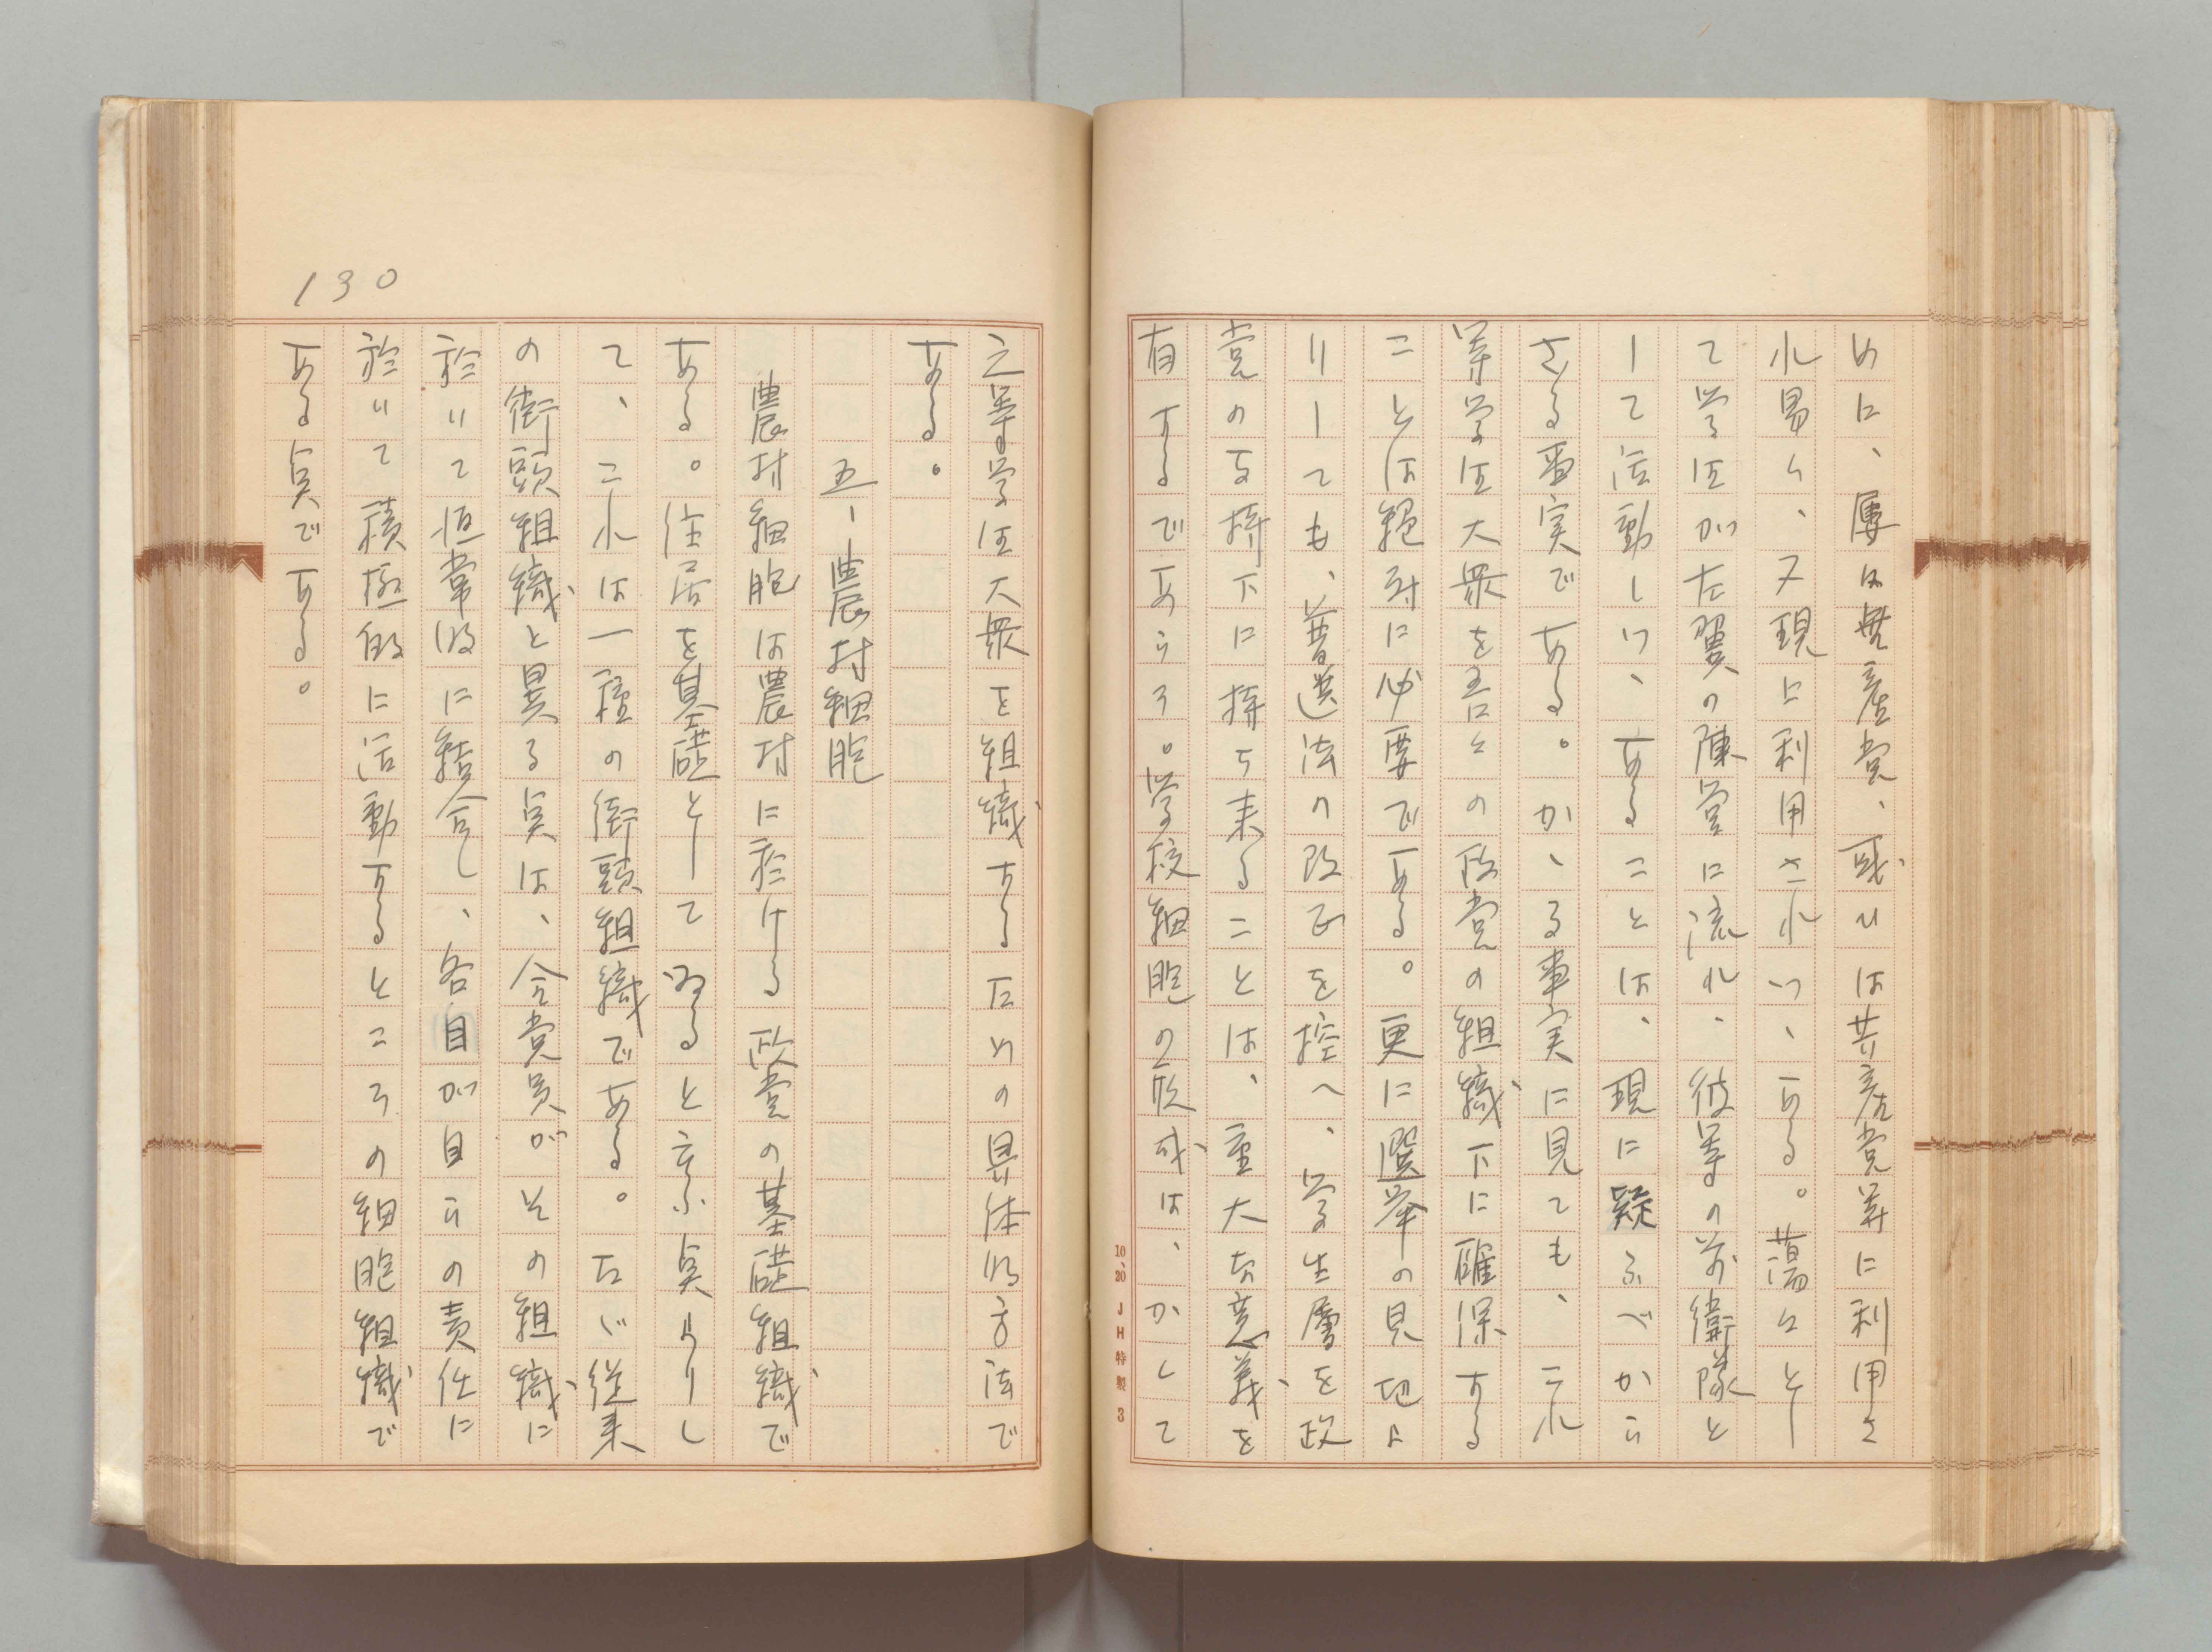 めに、屡は無産党、或ひは共産党等に利用さ
れ易く、又現に利用されつゝある。蕩々とし
て学生が左翼の陣営に流れ、彼等の前衛隊と
して活動しつゝあることは、現に疑ふべから
ざる事実である。かゝる事実に見ても、これ
等学生大衆を吾々の政党の組織下に確保する
ことは絶対に必要である。更に選挙の見地よ
りしても、普選法の改正を控へ、学生層を政
党の支持下に持ち来ることは、重大な意義を
有するであらう。学校細胞の形成は、かくして
之等学生大衆を組織するための具体的方法で
ある。
五、農村細胞
農村細胞は農村に於ける政党の基礎組織で
ある。住居を基礎としてゐると言ふ点よりし
て、これは一種の街頭組織である。たゞ従来
の街頭組織と異る点は、全党員がその組織に
於いて恒常的に結合し、各自が自らの責任に
於いて積極的に活動するところの細胞組織で
ある点である。
130
10、20 JH特製 3